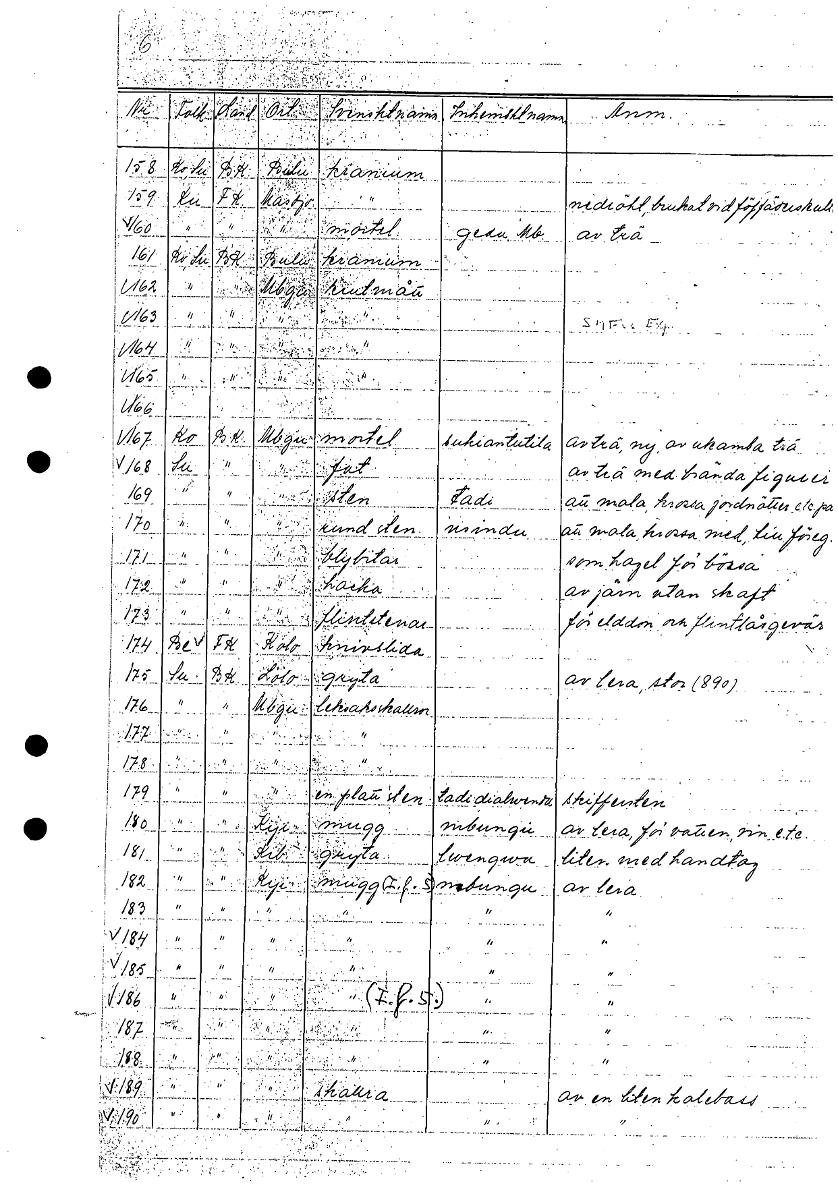 6
Nr Folk Land Ort Svenskt namn Inhemskt namn Anm.
158 Ko, Su BK Bulu kranium
159 Ku FK Masojo " " nedrökt, brukat vid
√160 " " " mortel gedu Mb av trä
161 Ko, Su BK Bulu kranium
√162 " " Mbgu krutmått
√163 " " " "
√164 " " " "
√165 " " " "
√166
√167 Ko BK Mbgu mortel sukiantutila av trä, ny, av ukamba trä
√168 Su " " fat av trä med brända figurer
169 " " " sten tadi att mala, krossa jordnötter etc på
170 " " " rund sten nsindu att mala, krossa med, till föreg.
171 " " " blybitar som hagel för bössa
172 " " " hacka av järn utan skaft
173 " " " flintstenar för elddon och flintlåsgevär
174 Be √ FK Kolo knivslida
175 Su BK Lolo gryta av lera, stor (890)
176 " " Mbgu leksaksskallror
177 " " " "
178 " " " "
179 " " " en platt sten skiffersten
180 " " Kyi mugg mbungu av lera, för vatten, vin etc.
181 " " Kib gryta lwengwa liten med handtag
182 " " Kyi mugg (I.f.S) mbungu av lera
183 " " " " " "
√184 " " " " " "
√185 " " " " " "
√186 " " " " (I.f.S.) " "
187 " " " " " "
188 " " " " " "
√189 " " " skallra av en liten kalebass
√190 " " " " " "